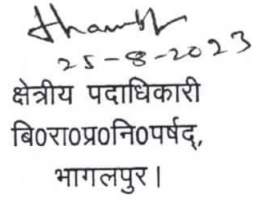 25-8-2023
क्षेत्रीय पदाधिकारी
बि०रा०प्र०नि०पर्षद्,
भागलपुर।